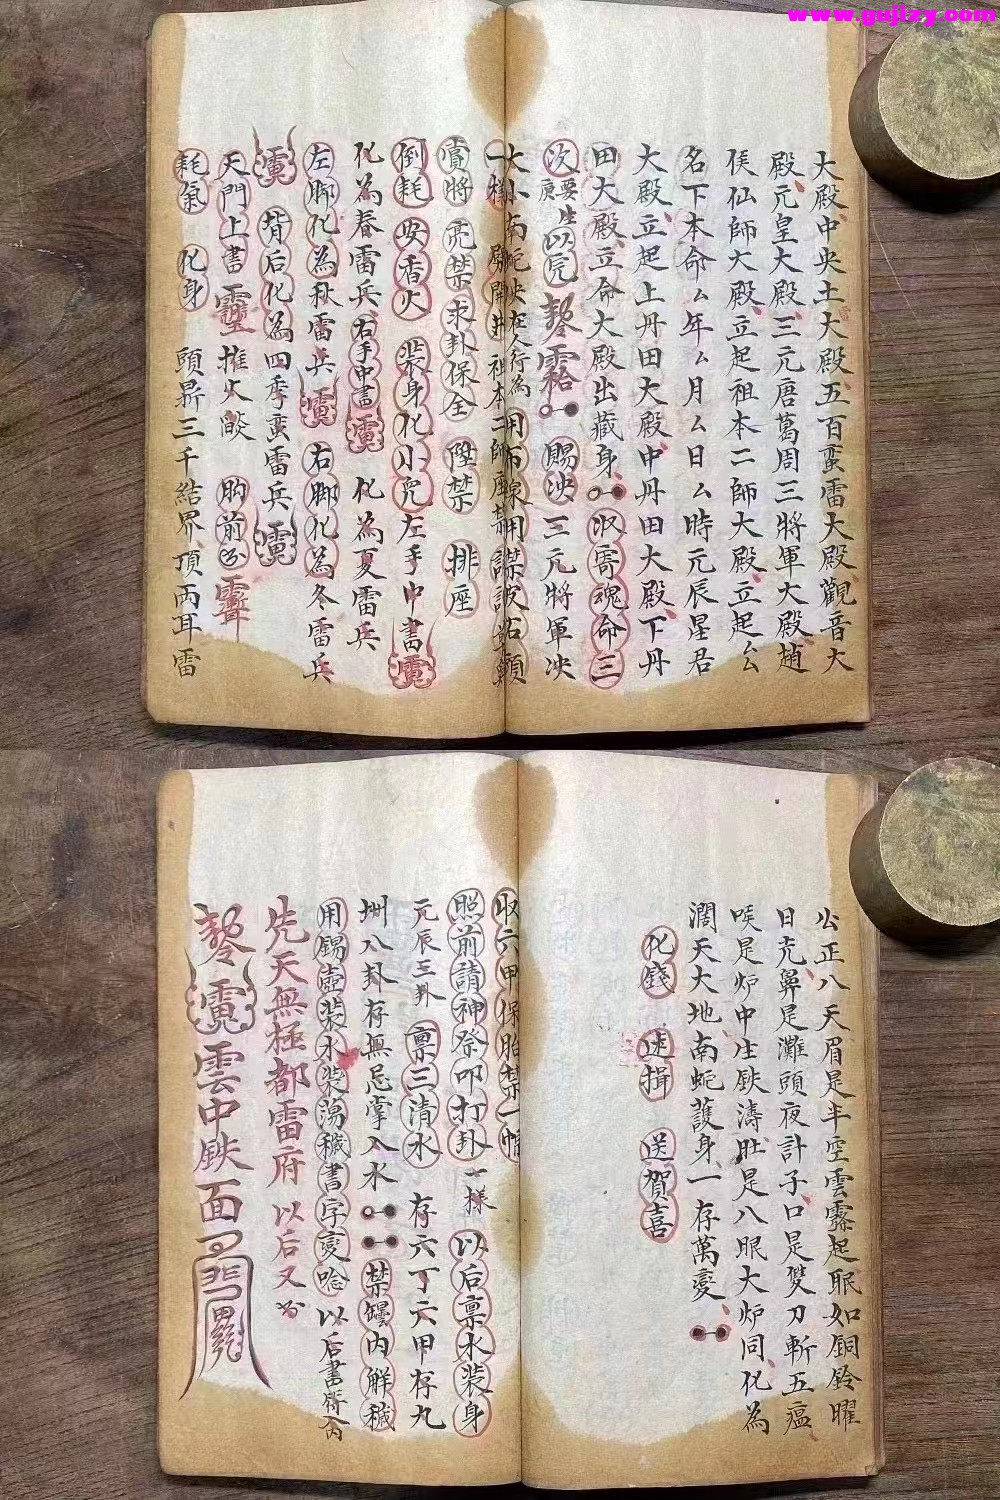 www.gujizy.com
大殿中央土大殿五百蛮雷大殿觀音大
殿元皇大殿三元唐葛周三將軍大殿趙
侯仙師大殿立起祖本二師大殿立起厶厶
名下本命厶年厶月厶日厶時元辰星君
大殿立起上丹田大殿中丹田大殿下丹
田大殿立命大殿出藏身收寄魂命三
次要生以完 賜決三元將軍決
大小南蛇決在人行為
一樣 祖本二師座
賞將亮禁求卦保全 陞禁 排座
倒耗 安香火 裝身化小完左手中書
化為春雷兵右手中書 化為夏雷兵
左脚化為秋雷兵 右脚化為冬雷兵
背后化為四季蛮雷兵
天門上書 推火燄 胸前
耗氣 化身 頭鼎三千結界頂両耳雷
公正八天眉是半空雲霧起眼如銅鈴曜
日光鼻是灘頭夜計子口是雙刀斬五瘟
喉是炉中生鉄濤肚是八眼大炉同化為
濶天大地南蛇護身一存萬变
化錢 速揖 送賀喜
收六甲保胎禁一
照前請神祭叩打卦一樣 以后禀水装身
元辰三卦 禀三清水 存六丁六甲存九
州八卦存無忌掌入水 禁罈内解穢
用錫壺装水装蕩穢書字变唸以后書
先天無極都雷府 以后又
雲中鉄面